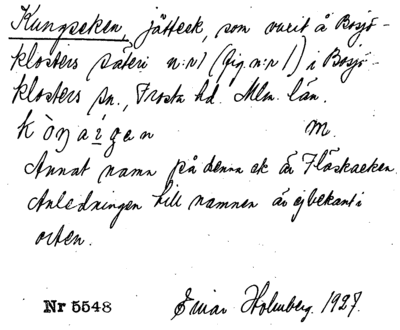 Kungseken, jätteek, som vuxit å Bosjö-
klosters säteri n:r 1 (fig. n:r 1) i Bosjö-
klosters sn., Frosta hd. Mlm. län.
kòŋaigen m.
Annat namn på denna ek är Fläskaeken.
Anledningen till namnen är ej bekant i
orten.
Nr 5548 Einar Holmberg. 1927.